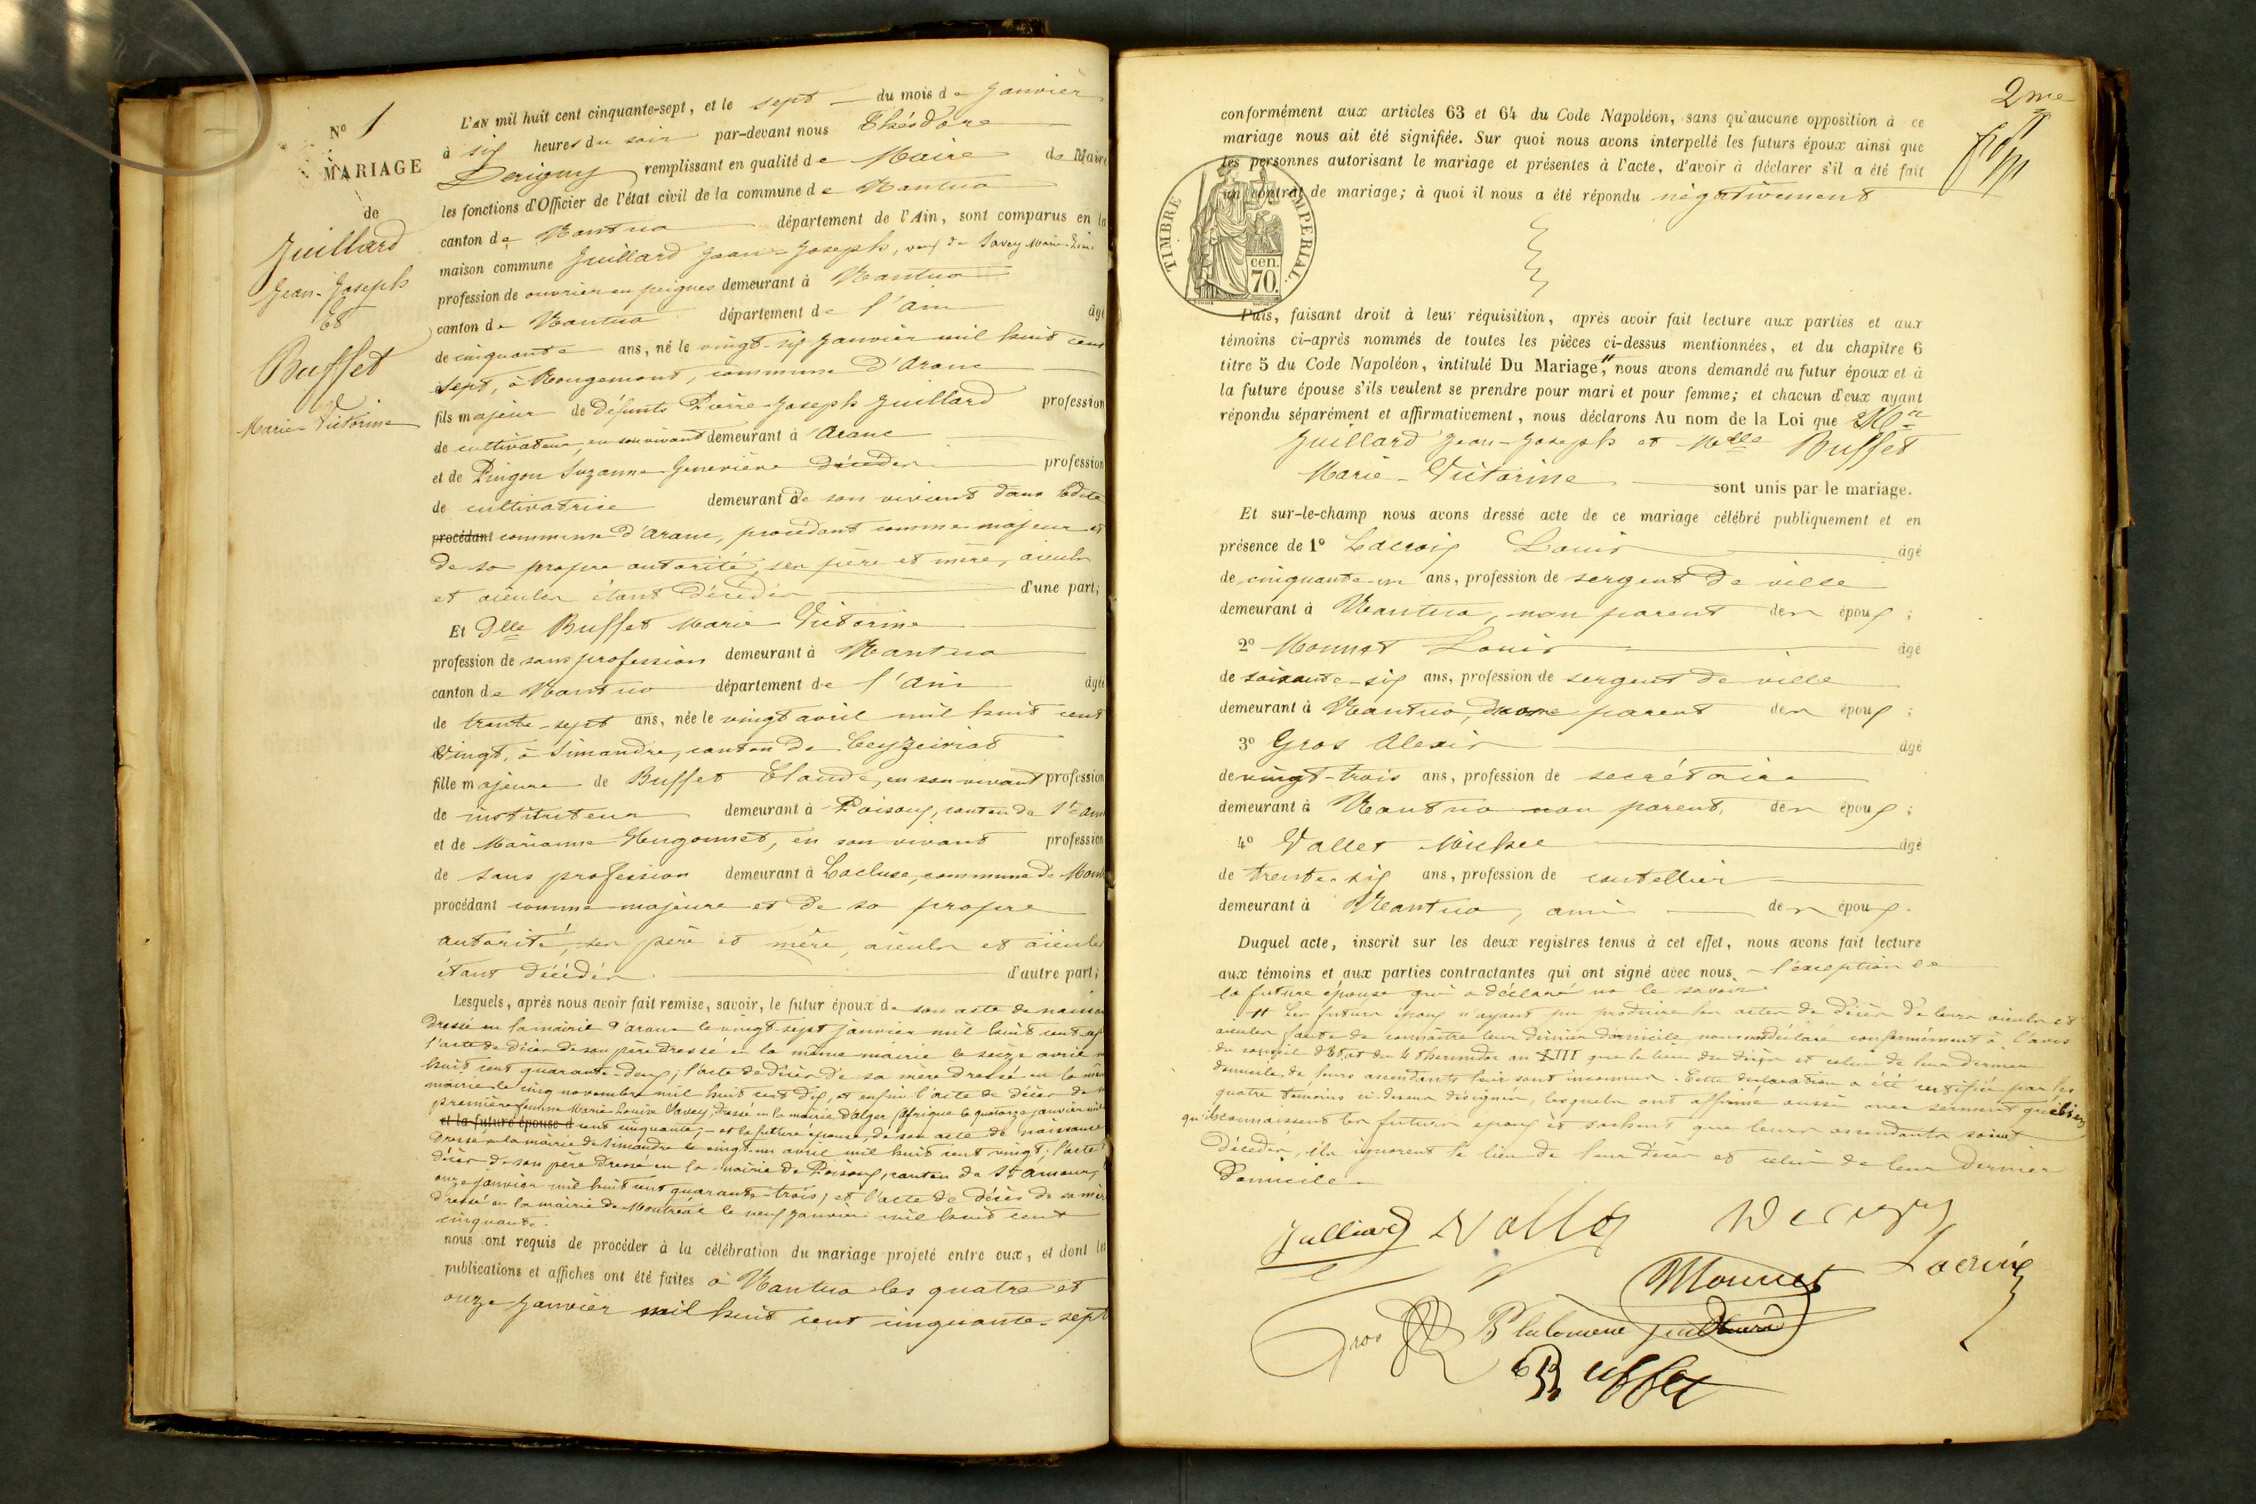 N° 1
MARIAGE
de
Juillard
Jean-Joseph
et
Buffet
Marie Victorine
L'AN mil huit cent cinquante-sept, et le sept du mois de Janvier
à six heures du soir par-devant nous Théodore
Derigny remplissant en qualité de Maire de Maire
les fonctions d'Officier de l'état civil de la commune de Nantua
canton de Nantua département de l'Ain, sont comparus en la
maison commune Juillard Jean-Joseph, veuf de Savey Marie
profession de ouvrier en peignes demeurant à Nantua
canton de Nantua département de l'Ain âgé
de cinquante ans, né le vingt-six Janvier mil huit cent
sept, à Rougemont, commune d'Aranc
fils majeur de défunts Pierre-Joseph Juillard profession
de cultivateur, en son vivant demeurant à Aranc
et de Pingon Suzanne Geneviève décédée profession
de cultivatrice demeurant de son vivant dans ladite
procédant commune d'Aranc, procédant comme majeur et
de sa propre autorité, ses père et mère, aïeuls
et aïeules étant décédés d'une part;
Et Dlle Buffet Marie Victorine
profession de sans profession demeurant à Nantua
canton de Nantua département de l'Ain âgée
de trente-sept ans, née le vingt avril mil huit cent
vingt, à Simandre, canton de Ceyzeriat
fille majeure de Buffet Claude, en son vivant profession
de instituteur demeurant à Poisoux, canton de St Am
et de Marianne Hugonnet, en son vivant profession
de sans profession demeurant à Lacluse, commune de Mont
procédant comme majeure et de sa propre
autorité, ses père et mère, aïeuls et aïeules
étant décédés d'autre part;
Lesquels, après nous avoir fait remise, savoir, le futur époux de son acte de naissan
dressé en la mairie d'Aranc le vingt-sept janvier mil huit cent sept
l'acte de décès de son père dressé en la même mairie le seize avril m
huit cent quarante-deux; l'acte de décès de sa mère dressé en la mêm
mairie le cinq novembre mil huit cent dix, et enfin l'acte de décès de
première femme Marie Louise Savey, dressé en la mairie d'Alger, Afrique le quatorze janvier mil
et la future épouse d cent cinquante; - et la future épouse, de son acte de naissance
dressé en la mairie de Simandre le vingt-un avril mil huit cent vingt; l'acte
décès de son père dressé en la mairie de Poisoux, canton de St Amour,
onze janvier mil huit cent quarante-trois; et l'acte de décès de sa mèr
dressé en la mairie de Montréal le neuf janvier mil huit cent
cinquante.
nous ont requis de procéder à la célébration du mariage projeté entre eux, et dont les
publications et affiches ont été faites à Nantua les quatre et
onze Janvier mil huit cent cinquante-sept
2me
conformément aux articles 63 et 64 du Code Napoléon, sans qu'aucune opposition à ce
mariage nous ait été signifiée. Sur quoi nous avons interpellé les futurs époux ainsi que
les personnes autorisant le mariage et présentes à l'acte, d'avoir à déclarer s'il a été fait
un contrat de mariage; à quoi il nous a été répondu négativement
TIMBRE IMPERIAL
cen.
70.
Puis, faisant droit à leur réquisition, après avoir fait lecture aux parties et aux
témoins ci-après nommés de toutes les pièces ci-dessus mentionnées, et du chapitre 6
titre 5 du Code Napoléon, intitulé Du Mariage", nous avons demandé au futur époux et à
la future épouse s'ils veulent se prendre pour mari et pour femme; et chacun d'eux ayant
répondu séparément et affirmativement, nous déclarons Au nom de la Loi que
Juillard Jean-Joseph et Melle Buffet
Marie-Victorine sont unis par le mariage.
Et sur-le-champ nous avons dressé acte de ce mariage célébré publiquement et en
présence de 1° Lacroix Louis âgé
de cinquante-un ans, profession de sergent de ville
demeurant à Nantua, non parent des époux;
2° Monnet Louis âgé
de soixante-six ans, profession de sergent de ville
demeurant à Nantua, parent des époux;
3° Gros Alexis âgé
de vingt-trois ans, profession de secrétaire
demeurant à Nantua non parent, des époux;
4° Vallet Michel âgé
de trente-six ans, profession de coutellier
demeurant à Nantua, ami des époux.
Duquel acte, inscrit sur les deux registres tenus à cet effet, nous avons fait lecture
aux témoins et aux parties contractantes qui ont signé avec nous, l'exception de
la future épouse qui a déclaré ne le savoir
Les futurs époux n'ayant pu produire les actes de décès de leurs aïeuls et
aïeules, faute de connaître leur dernier domicile, nous ont déclaré conformément à l'avis
du conseil d'Etat du 4 thermidor an XIII que le lieu du décès et celui de leur dernier
domicile de leurs ascendants leur sont inconnus. Cette déclaration a été certifiée par les
quatre témoins ci-dessus désignés, lesquels ont affirmé aussi avec serment que bien
qu'ils connaissent les futurs époux et sachent que leurs ascendants soient
décédés, ils ignorent le lieu de leur décès et celui de leur dernier
Domicile.
Julliard Vallet Derigny
Monnet Lacroix
Gros Philomene Juillard
Buffet